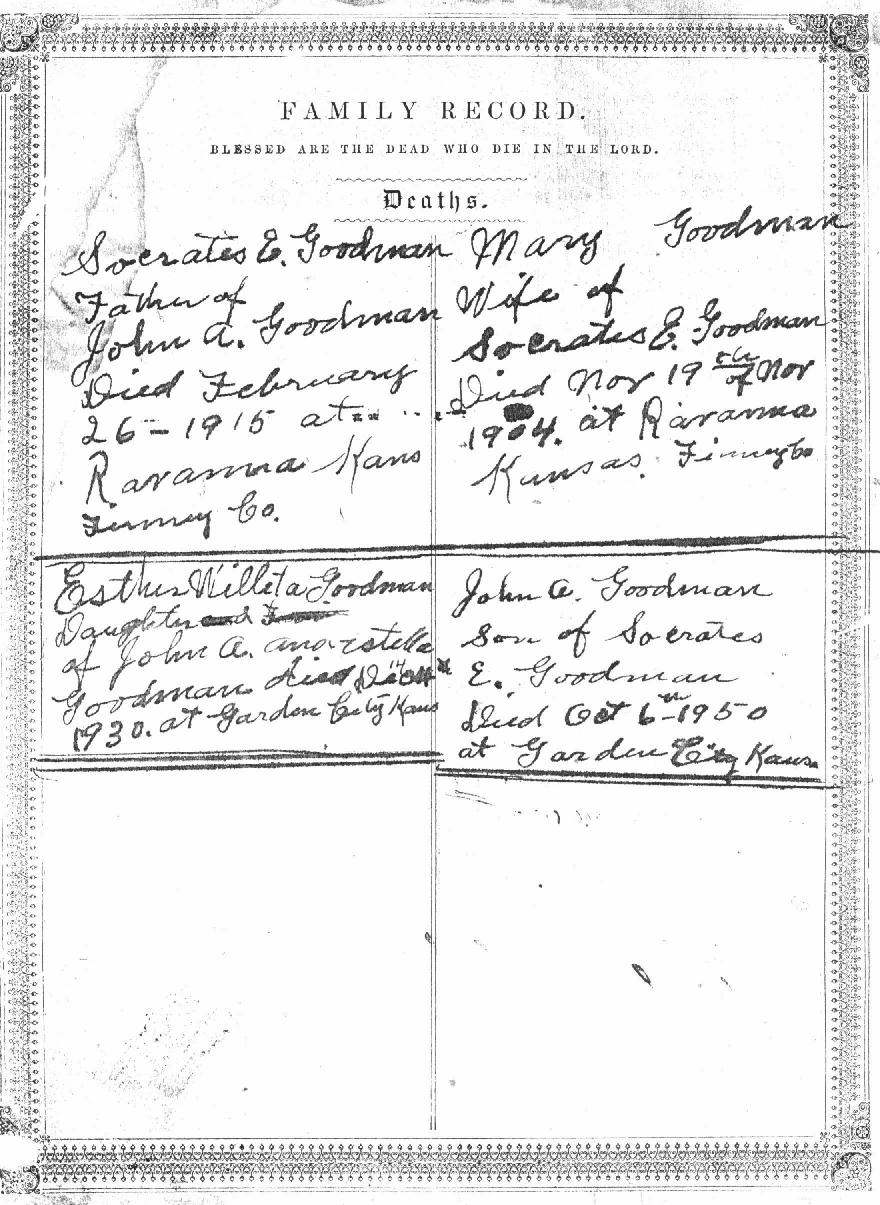 FAMILY RECORD.
BLESSED ARE THE DEAD WHO DIE IN THE LORD.
Deaths.
Socrates E. Goodman
Father of
John A. Goodman
Died February
26-1915 at
Ravanna Kans
Finney Co.
Mary Goodman
Wife of
Socrates E. Goodman
Died Nov 19th of Nov
1904. at Ravanna
Kansas. Finney Co
Esther Willeta Goodman
Daughter
of John A. and Estella
Goodman died
1930. at Garden City Kans
John A. Goodman
Son of Socrates
E. Goodman
Died Oct 6th-1950
at Garden City Kans.